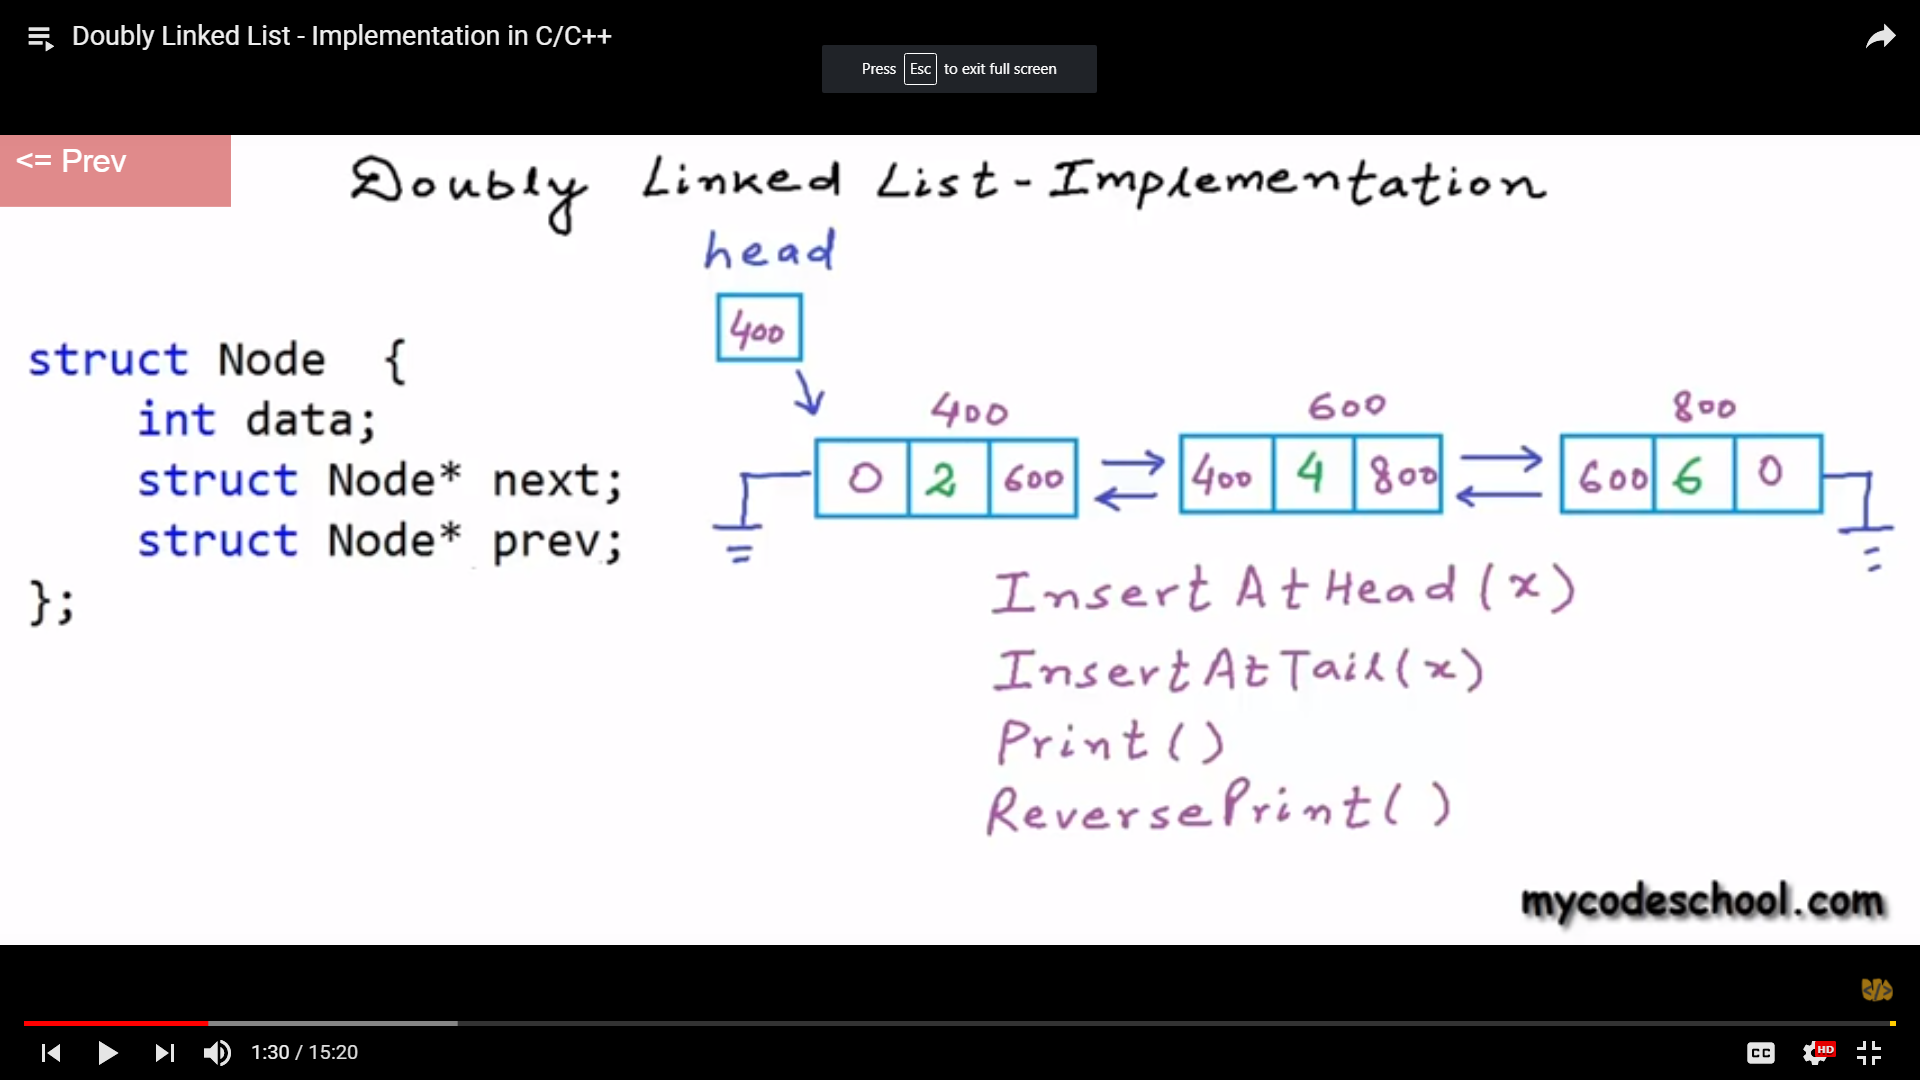 Doubly Linked List - Implementation in C/C++
Press Esc to exit full screen
<= Prev
Doubly Linked List - Implementation
head
400
struct Node {
int data;
struct Node* next;
struct Node* prev;
};
400 600 800
0 2 600 400 4 800 600 6 0
InsertAtHead(x)
InsertAtTail(x)
Print()
ReversePrint()
mycodeschool.com
</>
1:30 / 15:20
CC HD